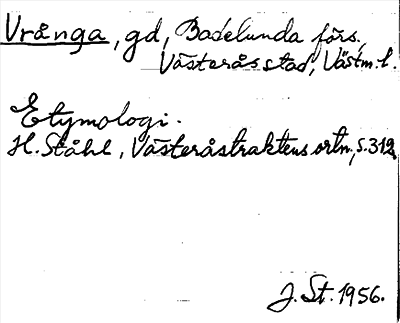 Vrånga, gd, Badelunda förs.,
Västerås stad, Västm. l.
Etymologi.
H. Ståhl, Västeråstraktens ortn., s. 312
J. St. 1956.